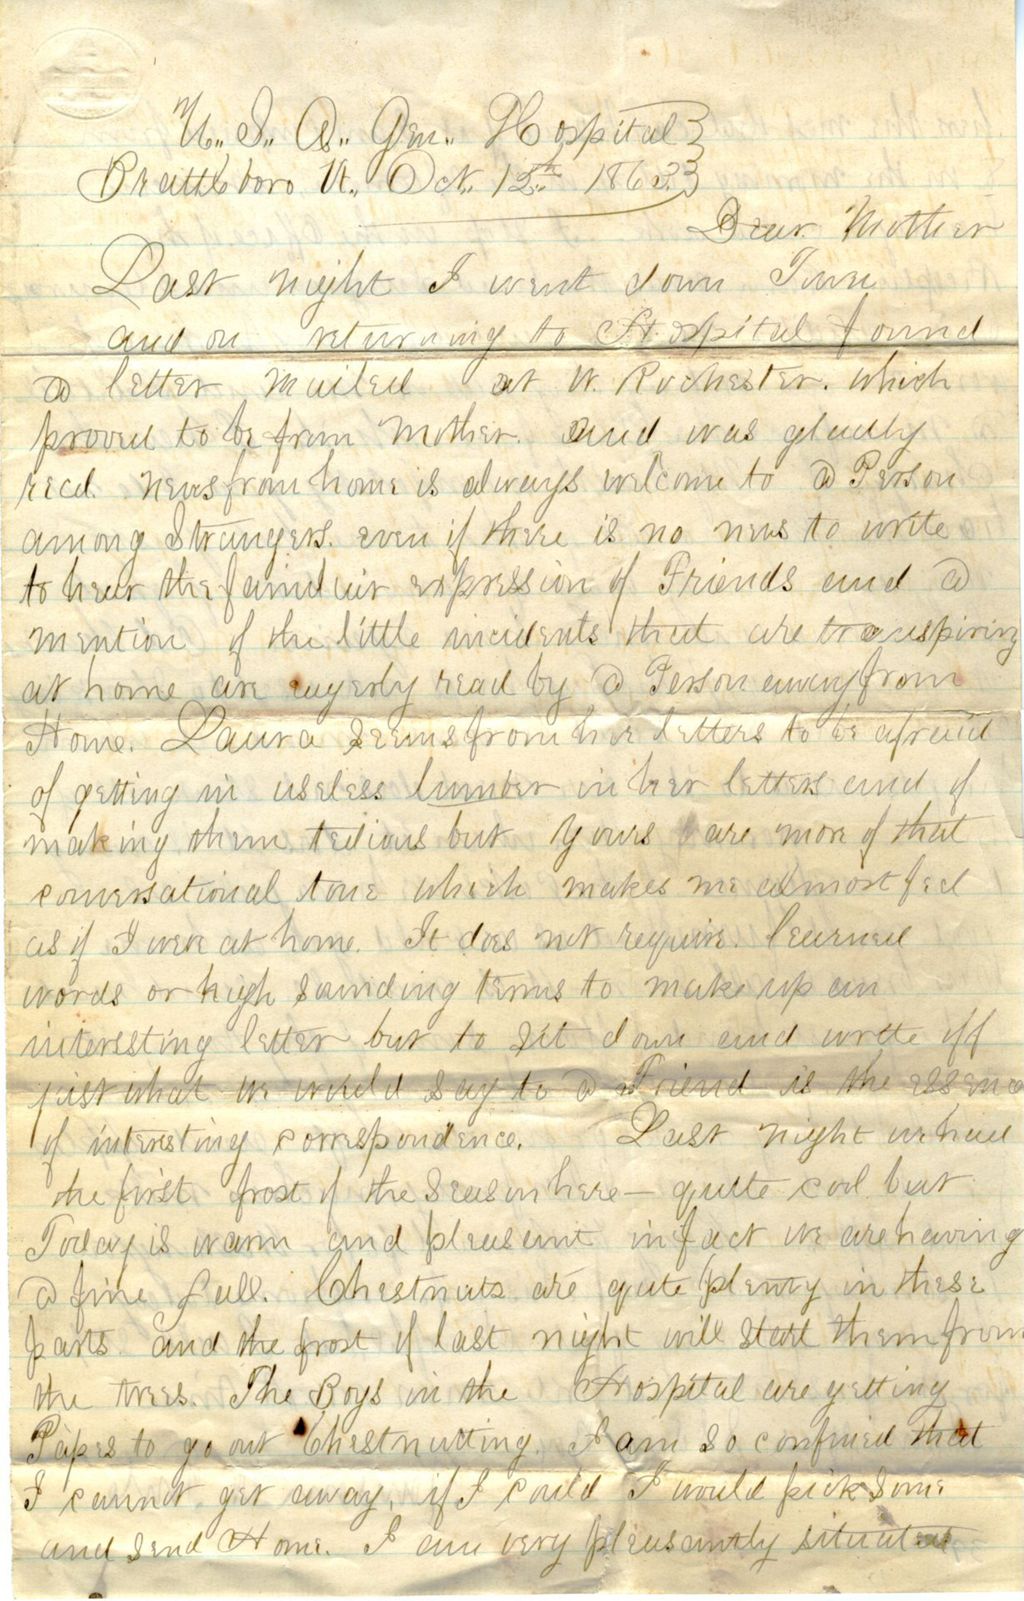 U.. S.. A.. Gen.. Hospital
Brattleboro Vt., Oct.. 12th 1863.
Dear Mother
Last night I went down Town
and on returning to Hospital found
a letter mailed at W. Rochester. which
proved to be from Mother. and was gladly
recd. news from home is always welcome to a Person
among Strangers. even if there is no news to write
to hear the familiar expression of Friends and a
mention of the little incidents that are transpiring
at home are eagerly read by a Person away from
Home. Laura seems from her letters to be afraid
of getting in useless lumber in her letters and of
making them tedious but yours are more of that
conversational tone which makes me almost feel
as if I were at home. It does not require learned
words or high sounding terms to make up an
interesting letter but to sit down and write off
just what we would say to a Friend is the essence
of interesting correspondence. Last night we had
the first frost of the season here — quite cool but
Today is warm and pleasant in fact we are having
a fine fall. Chestnuts are quite plenty in these
parts. and the frost of last night will start them from
the trees. The Boys in the Hospital are getting
Papes to go out Chestnutting. I am so confined that
I cannot get away, if I could I would pick some
and send Home. I am very pleasantly situated